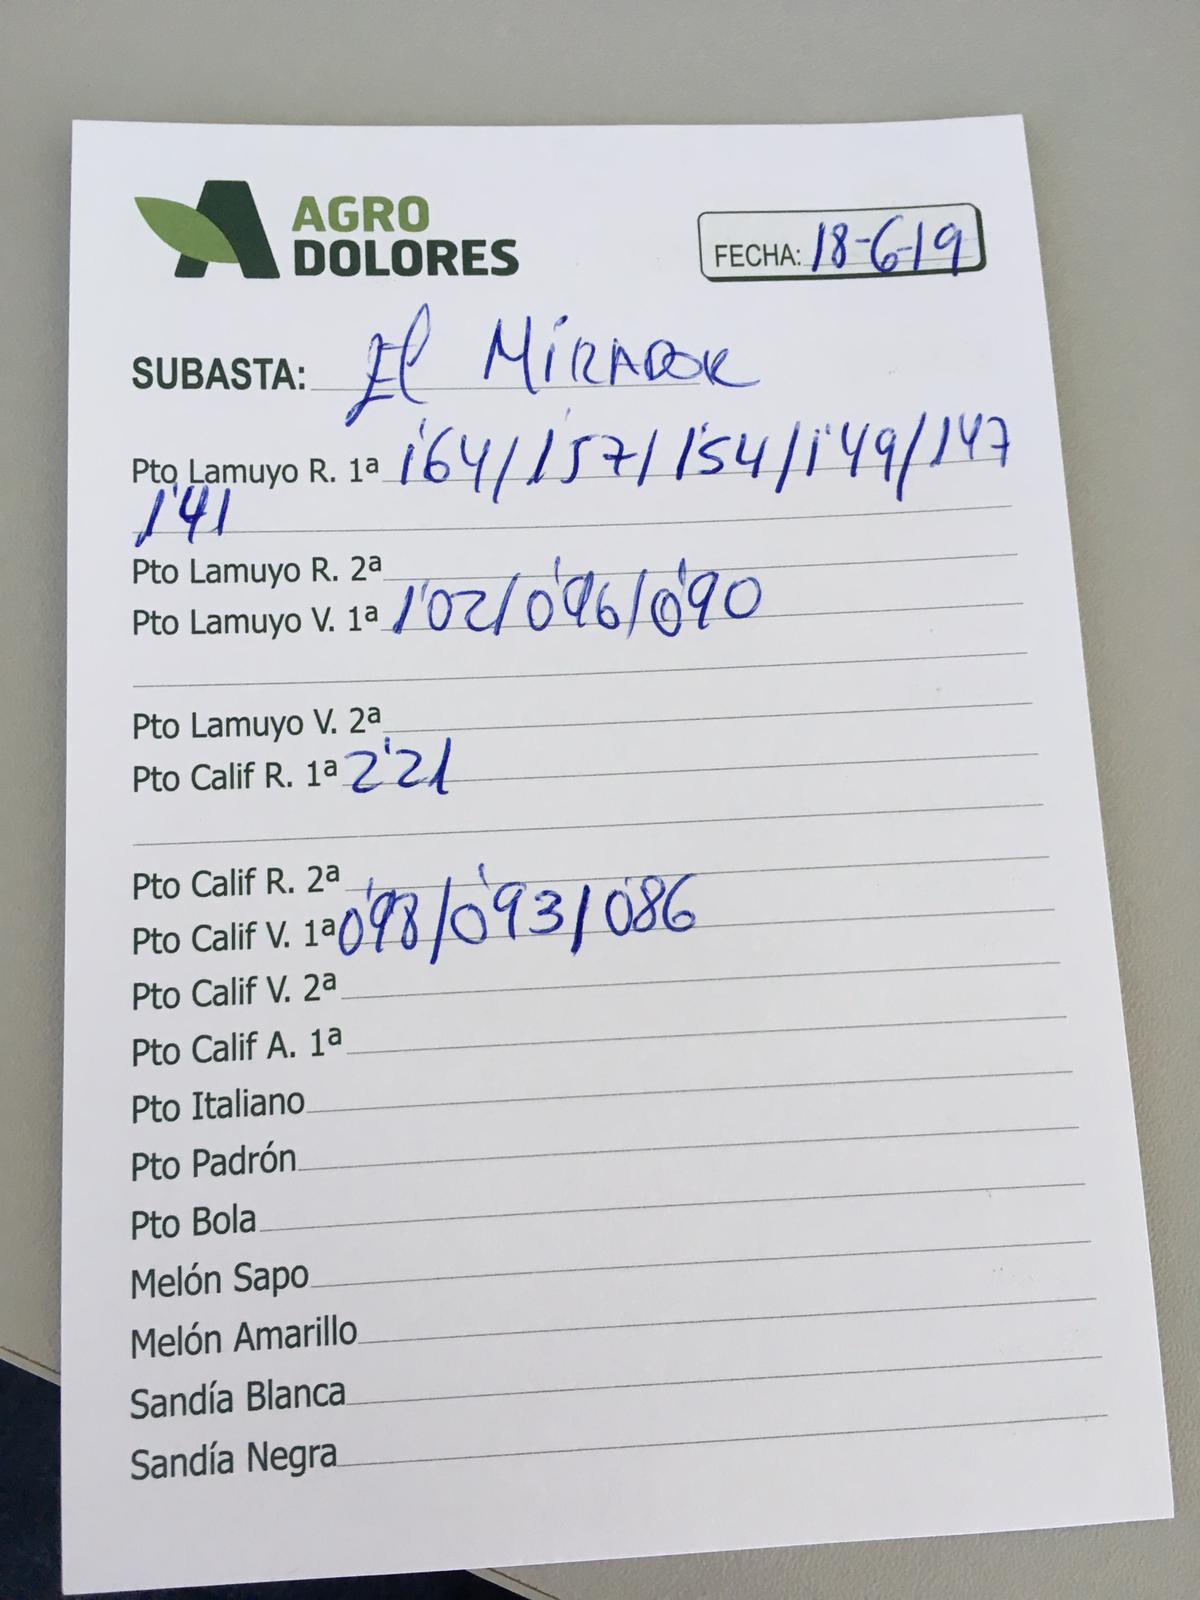 AGRO
DOLORES
FECHA: 18-6-19
SUBASTA: El MiRADOR
Pto Lamuyo R. 1ª 1'64/1'57/1'54/1'49/1'47
1'41
Pto Lamuyo R. 2ª
Pto Lamuyo V. 1ª 1'02/0'96/0'90
Pto Lamuyo V. 2ª
Pto Calif R. 1ª 2'21
Pto Calif R. 2ª
Pto Calif V. 1ª 0'98/0'93/0'86
Pto Calif V. 2ª
Pto Calif A. 1ª
Pto Italiano
Pto Padrón
Pto Bola
Melón Sapo
Melón Amarillo
Sandía Blanca
Sandía Negra